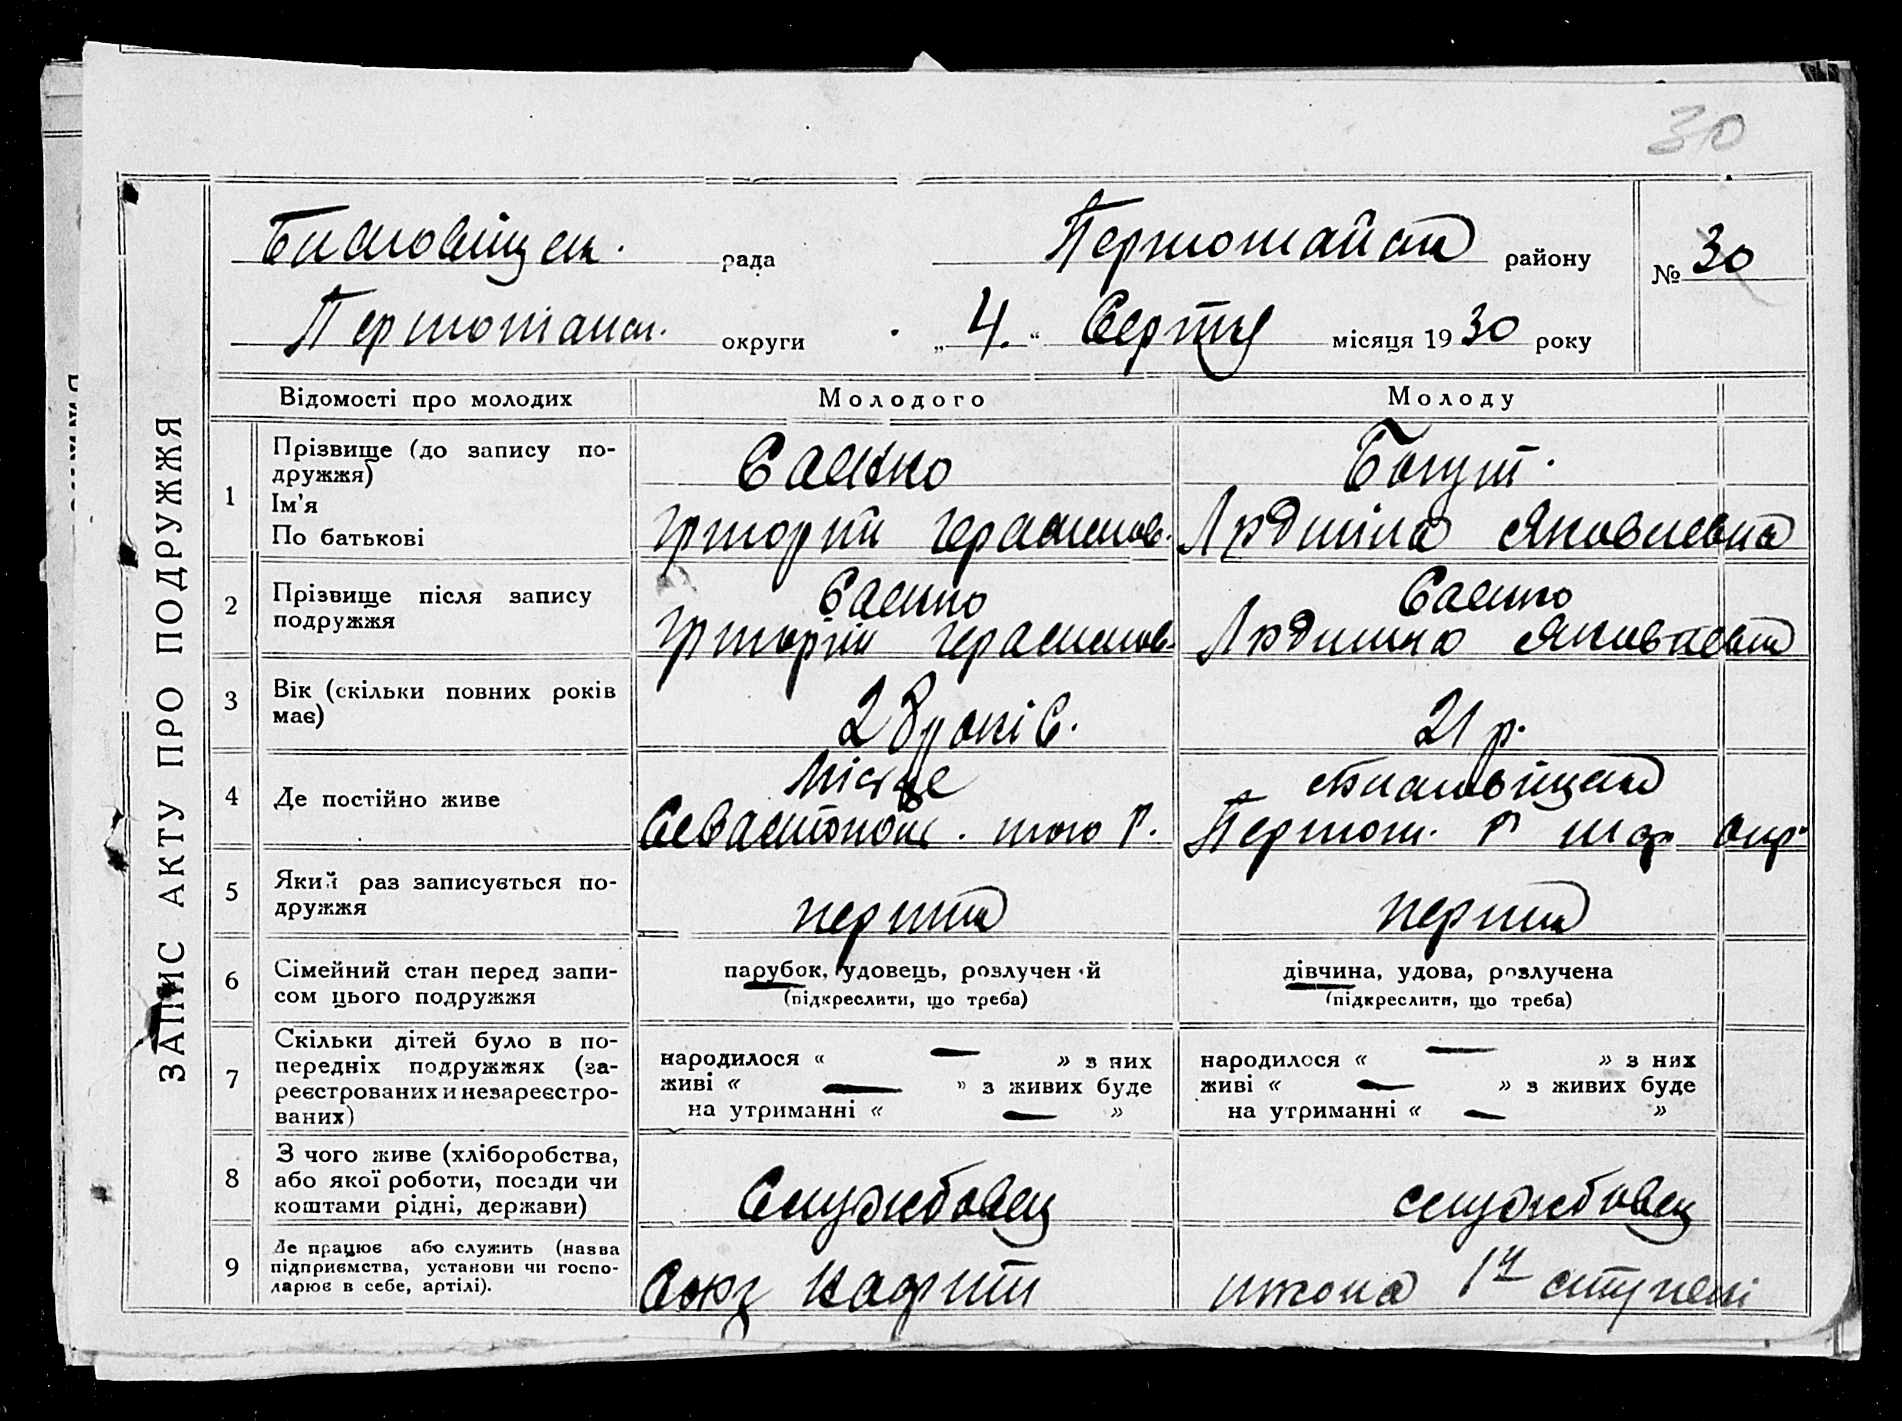 30
ЗАПИС АКТУ ПРО ПОДРУЖЖЯ
рада
Первомайськ району
№ 30
Первомайськ. округи
„4.“ Серпня місяця 1930 року
Відомості про молодих
Молодого
Молоду
1
Прізвище (до запису по-
дружжя)
Ім'я
По батькові
Саенко
Григорий Герасимов.
Богут.
Людмила Яковлевна
2
Прізвище після запису
подружжя
Саенко
Григорій Герасимов.
Саенко
Людмила Яковлевна
3
Вік (скільки повних років
має)
28 років.
21 р.
4
Де постійно живе
Місце
Севастополь. того р.
Первом. р
окр.
5
Який раз записується по-
дружжя
перший
перший
6
Сімейний стан перед запи-
сом цього подружжя
парубок, удовець, розлучений
(підкреслити, що треба)
дівчина, удова, розлучена
(підкреслити, що треба)
7
Скільки дітей було в по-
передніх подружжях (за-
реєстрованих и незареєстро-
ваних)
народилося « — » з них
живі « — » з живих буде
на утриманні « — »
народилося « — » з них
живі « — » з живих буде
на утриманні « — »
8
З чого живе (хліборобства,
або якої роботи, посади чи
коштами рідні, держави)
Службовец
службовец
9
Де працює або служить (назва
підприємства, установи чи госпо-
дарює в себе, артілі).
Союз
школа 1ї ступені